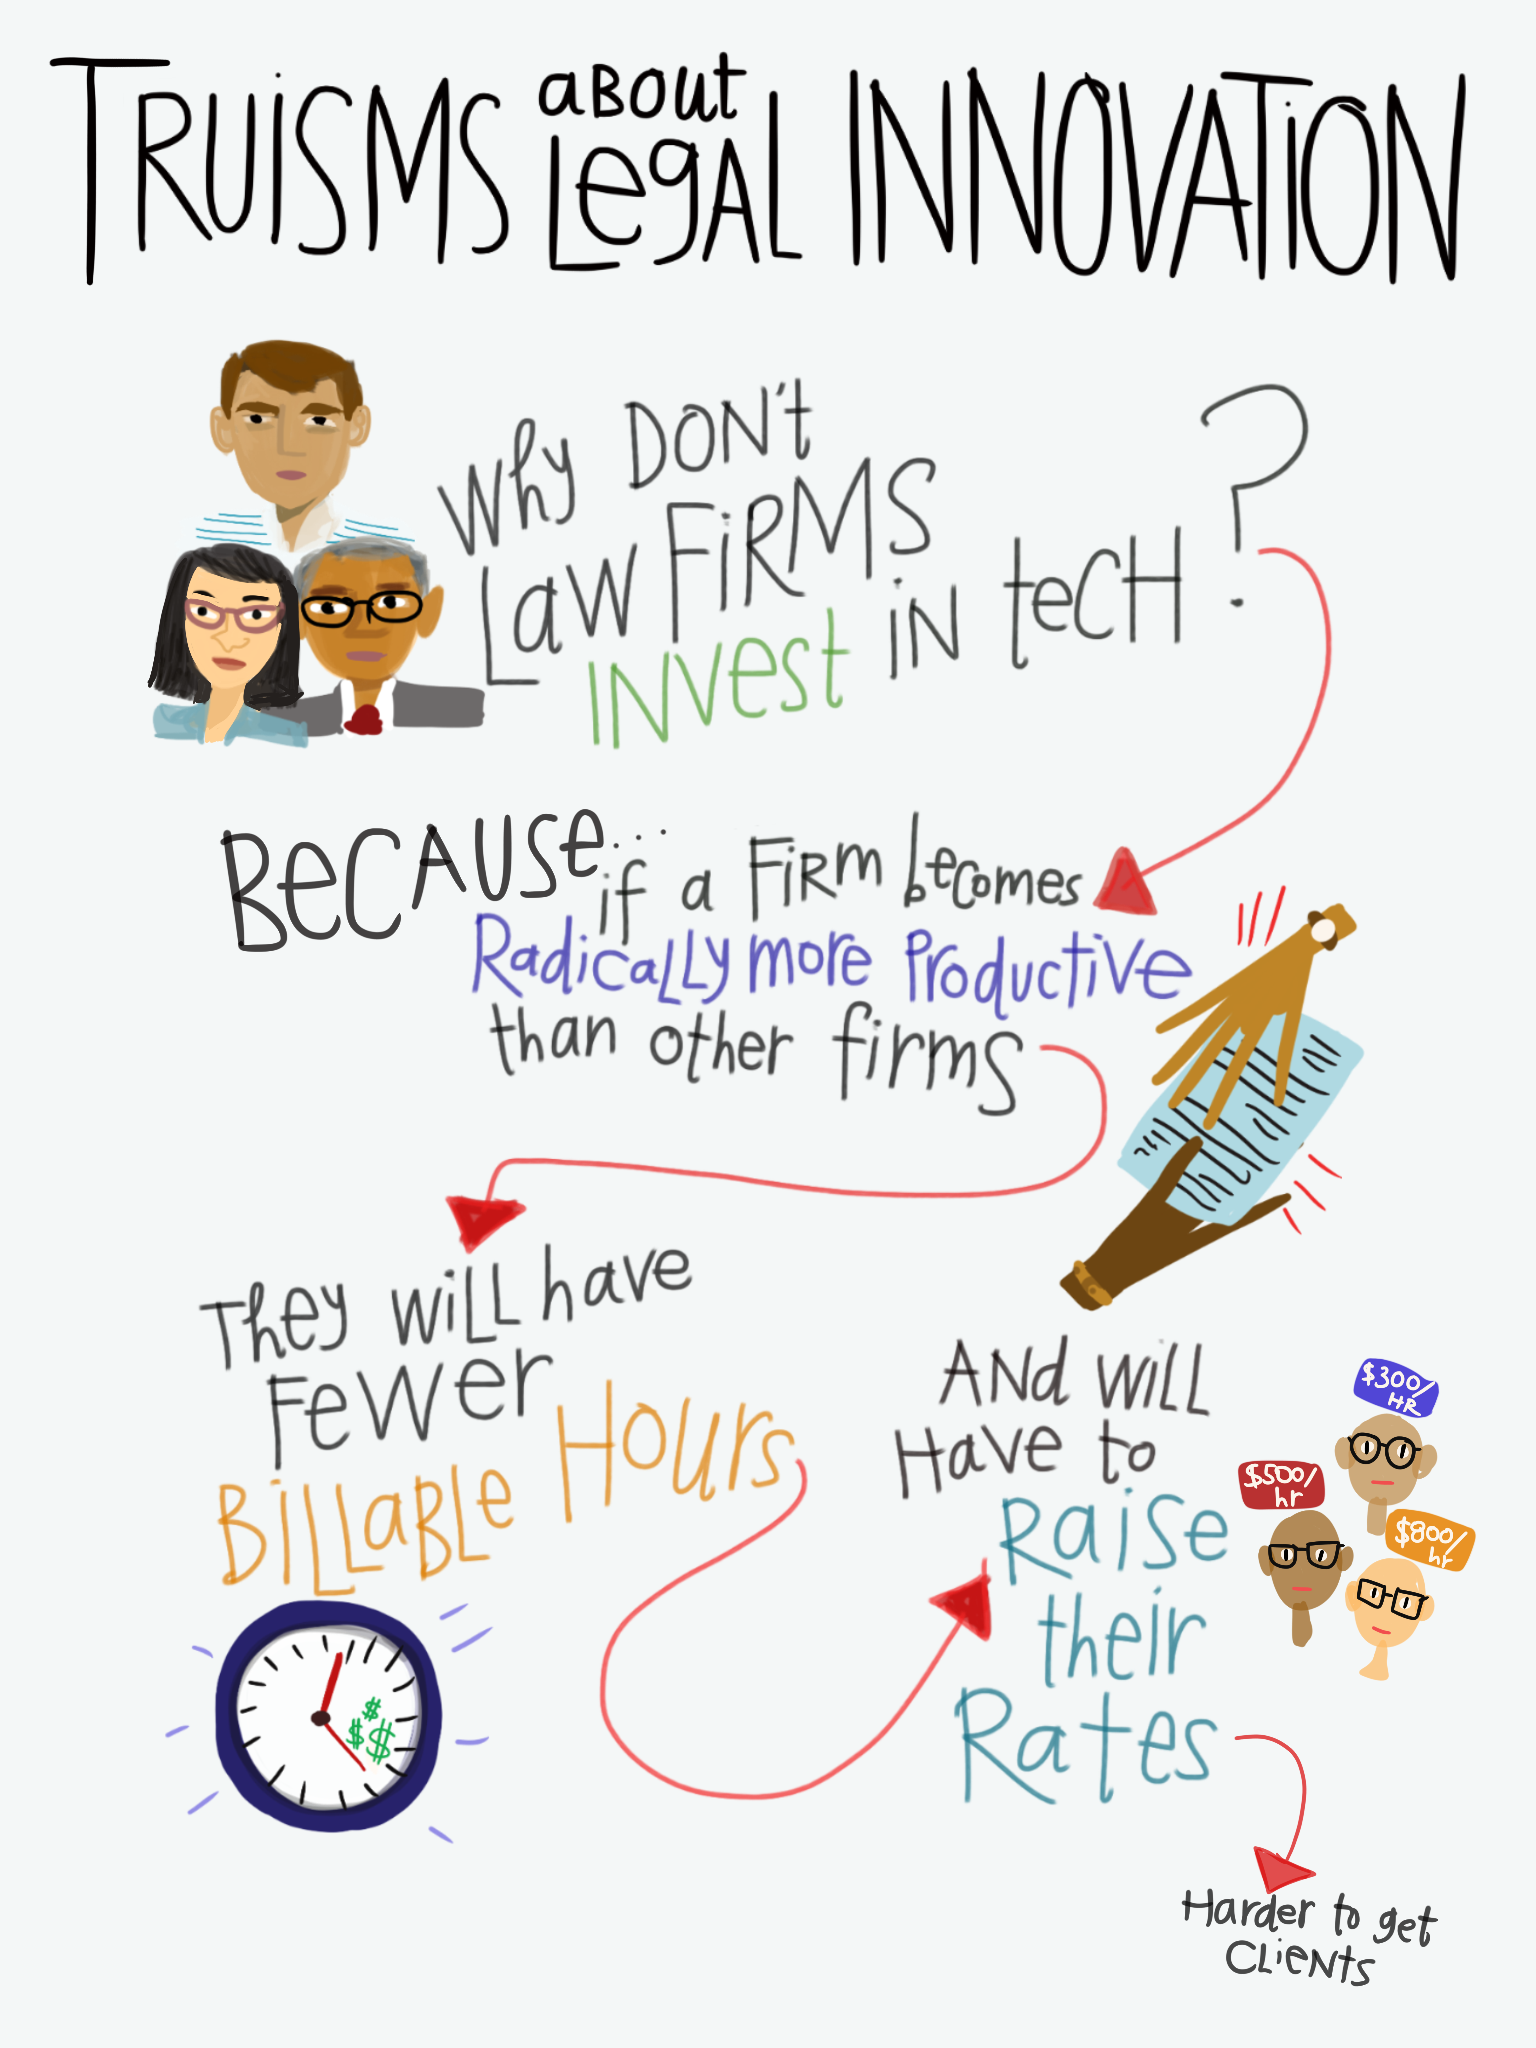 TRUiSMS aBOUt LegAL INNOVATiON
Why DON't
LaW FiRMS
INVest iN tecH ?
BecAUSe... if a FiRm becomes
RadicaLLy more Productive
than other firms
They WiLL have
FeWer
BiLLaBLe Hours
$$$
ANd WiLL
Have to
Raise
their
Rates
$300/
HR
$500/
hr
$800/
hr
Harder to get
CLieNts